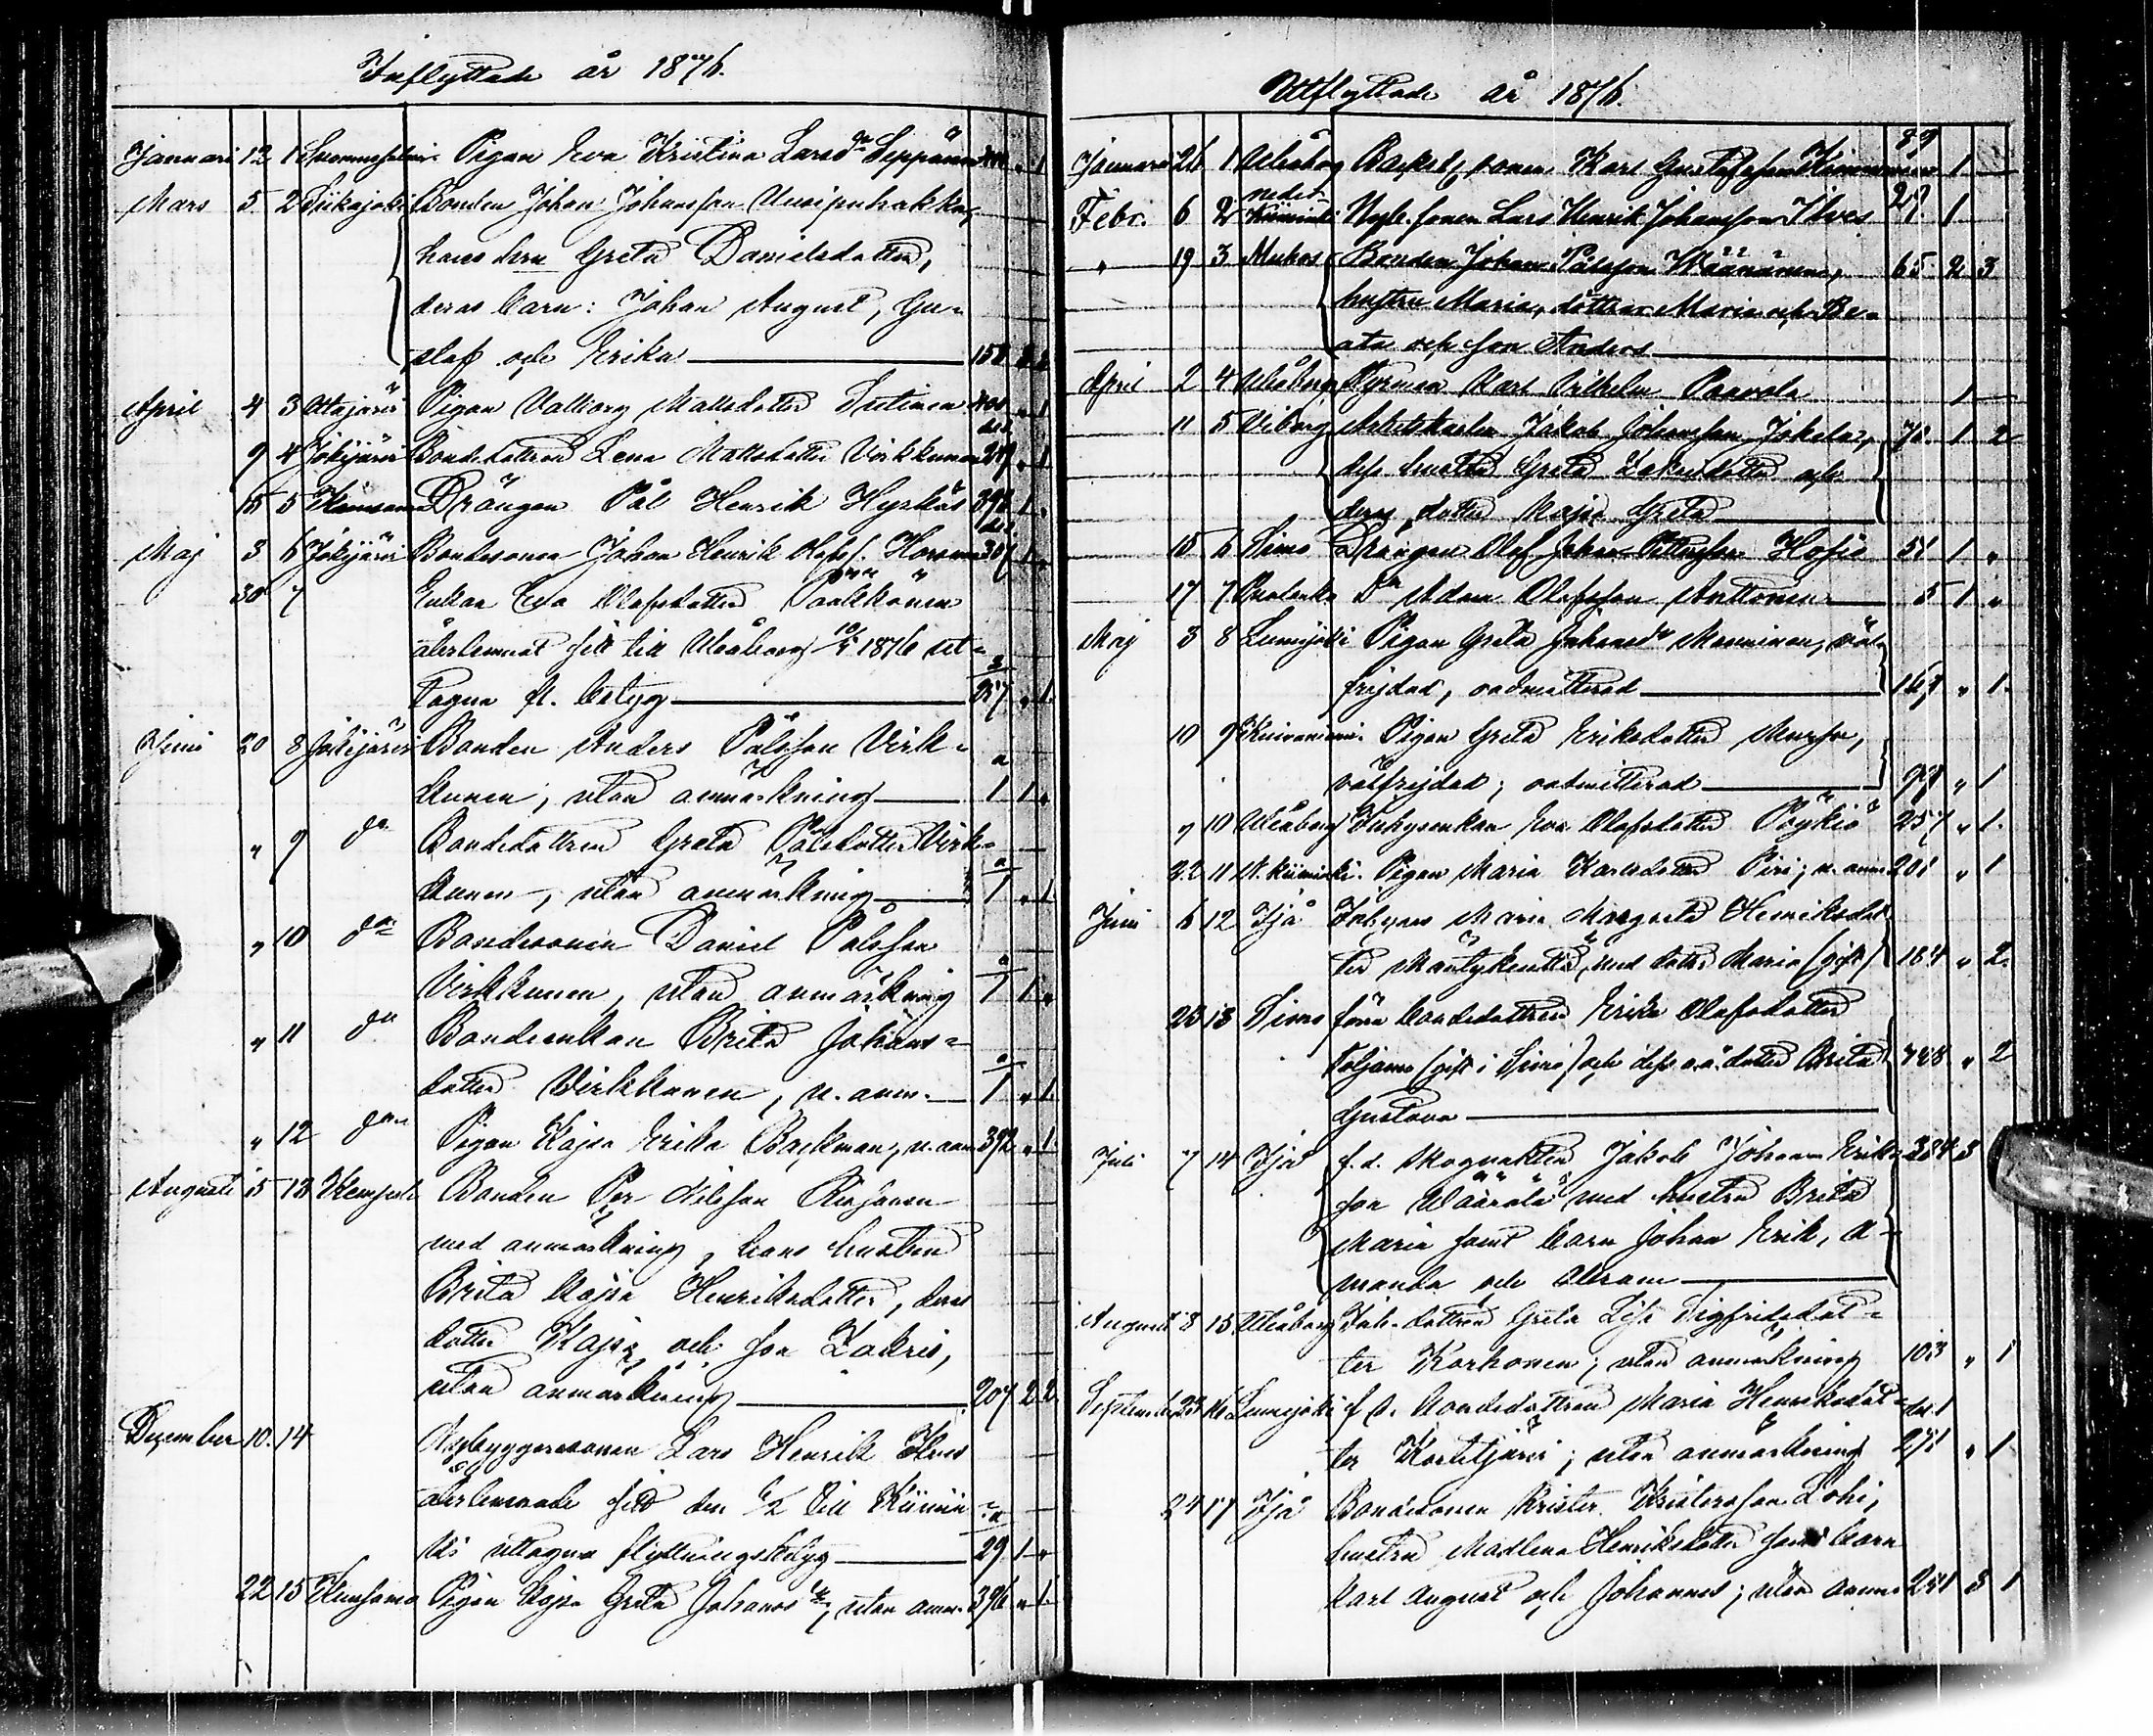 Inflyttade år 1876.
Januari 12 1 Suomussalmi Pigan Eva Kristina Larsdr Seppänen " 1
Mars 5 2 Siikajoki Bonden Johan Johansson
hans hru Greta Danielsdotter,
deras barn: Johan August, Gu-
staf och Erika 158
April 4 3 Pigan Valborg Mattsdotter " 1
9 4 Jokijärvi Bondedottren Lena Mattsdotter Virkkunen 249 " 1
15 5 Drängen Pål Henrik Hyrkäs 398 1 "
Maj 3 6 Jokijärvi Bondesonen Johan Henrik Olofss. 307 1 "
30 7 Enkan Eva Olofsdotter
återlemnat sitt till Uleåborg 10/5 1876 ut-
tagna fl. betyg 257 " 1.
Juni 20 8 Jokijärvi Bonden Anders Pålsson Virk-
kunen, utan anmärkning 1 1 "
" 9 do Bondedottren Greta Pålsdotter Virk-
kunen, utan anmärkning 1 " 1
" 10 do Bondesonen Daniel Pålsson
Virkkunen, utan anmärkning 1 1 "
" 11 do Bondeenkan Brita Johans-
dotter Virkkunen, u. anm. 1 " 1.
" 12 Pigan Kajsa Erika Backman, u. anm. 392 " 1.
Augusti 15 13 Kempele Bonden Per Nilsson
med anmärkning, hans hustru
Brita Kajsa Henriksdotter, deras
dotter Kajsa och son Zakris,
utan anmärkning 207 2 2
December 10. 14 Nybyggaresonen Lars Henrik Ilves
återlemnade sitt den 6/2 till Kiimin-
ki uttagna flyttningsbetyg 29 1 "
22 15 Kuusamo Pigan Kajsa Greta Johansdr, utan anm. 396 " 1.
Utflyttade år 1876.
Januari 26 1 Uleåborg sonen Karl Gustafsson 89 1
Febr. 6 2 Neder Kiiminki Nyb. sonen Lars Henrik Johansson Ilves 29. 1
" 19 3 Muhos Bonden Johan Pålsson Väänänen, 65 2 3
hustru Maria, döttrar Maria och Be-
ata och son Anders
April 2 4 Uleåborg Karl Vilhelm Paavola 1
11 5 Viborg Arbetskarlen Jakob Johansson Jokela, 1 2
dess hustru Greta och
deras dotter Kajsa Greta
15 6 Simo Drängen Olof Johan Pettersson 51 1 "
17 7 Puolanka Do Adam Olofsson Anttonen 5 1 "
Maj 3 8 Lumijoki Pigan Greta Johansdr Manninen, väl-
frejdad, oadmitterad 167 " 1.
10 9 Kuivaniemi Pigan Greta Eriksdotter
välfrejdad; oadmitterad 97 " 1
" 10 Uleåborg Inhysenkan Eva Olofsdotter Pöykiö 257 " 1.
22 11 N. Kiiminki. Pigan Maria Karlsdotter Piri; u. anm. 201 " 1
Juni 6 12 Ijå Inhyses Maria Margareta Henriksdot-
ter med dotter Maria (gift) 184 " 2.
23 13 Simo förra bondedottren Erika Olofsdotter
(gift i Simo) och dess o.ä. dotter Brita " 2
Gustava
Juli 7 14 Ijå f. d. skogvakten Jakob Johan Eriks- 384 3
son Määttä med hustru Brita
Maria samt barn Johan Erik, A-
manda och Abram
Augusti 8 15 Uleåborg Inh. dottren Greta Lisa Sigfridsdot-
ter Korhonen; utan anmärkning 103 " 1
September 23 16 Lumijoki f. d. bondedottren Maria Henriksdot-
ter utan anmärkning 271 " 1
24 17 Ijå Bondesonen Krister Kristersson Lohi,
hustru Madlena Henriksdotter samt barn
Karl August och Johannes; utan anm. 231 3 1